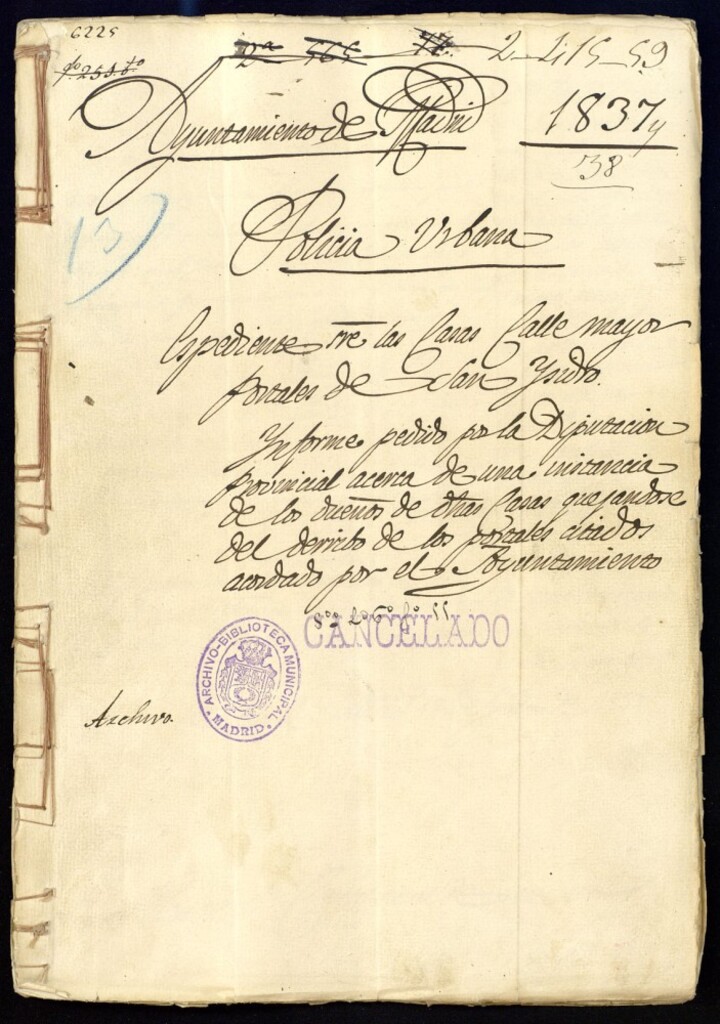 6225
2-415-59
Ayuntamiento de Madrid
1837 y
38
13
Policia Urbana
Espediente sre las Casas Calle mayor
portales de San Ysidro.
Ynforme pedido por la Diputacion
provincial acerca de una instancia
de los dueños de dhas Casas quejandose
del derribo de los portales citados
acordado por el Ayuntamiento
CANCELADO
ARCHIVO-BIBLIOTECA MUNICIPAL
MADRID
Archivo.